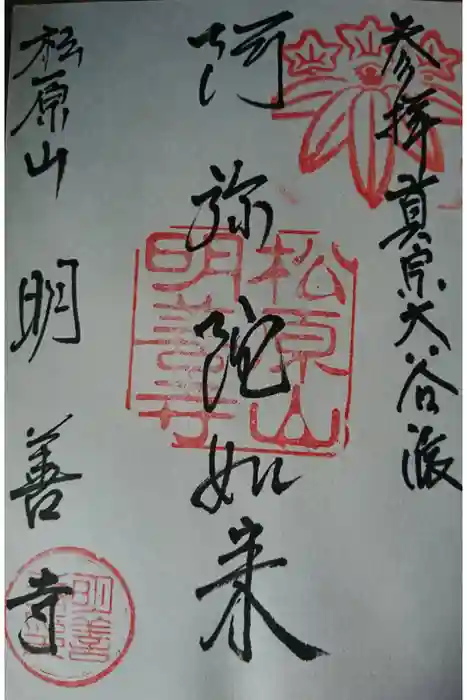 参拝 真宗大谷派
阿弥陀如来
松原山
明善寺
松原山 明善寺
明善寺